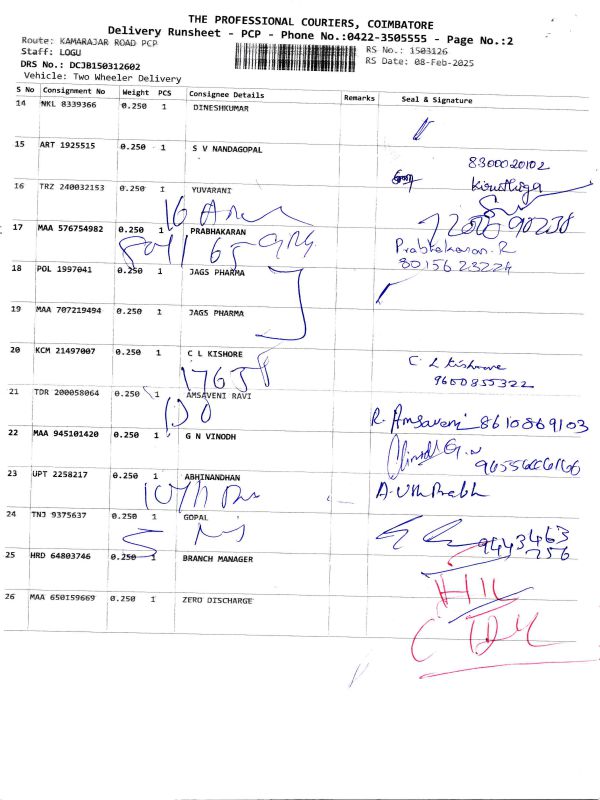 THE PROFESSIONAL COURIERS, COIMBATORE
Delivery Runsheet - PCP - Phone No.:0422-3505555 - Page No.:2
Route: KAMARAJAR ROAD PCP
RS No.: 1503126
Staff: LOGU
RS Date: 08-Feb-2025
DRS No.: DCJB150312602
Vehicle: Two Wheeler Delivery
S No Consignment No Weight PCS Consignee Details Remarks Seal & Signature
14 NKL 8339366 0.250 1 DINESHKUMAR
15 ART 1925515 0.250 1 S V NANDAGOPAL
8300020102
16 TRZ 240032153 0.250 1 YUVARANI
Kiruthiga
17 MAA 576754982 0.250 1 PRABHAKARAN
Prabhakaran.R
8015623224
18 POL 1997041 0.250 1 JAGS PHARMA
19 MAA 707219494 0.250 1 JAGS PHARMA
20 KCM 21497007 0.250 1 C L KISHORE
C L Kishore
9600855322
21 TDR 200058064 0.250 1 AMSAVENI RAVI
R. Amsaveni 8610869103
22 MAA 945101420 0.250 1 G N VINODH
23 UPT 2258217 0.250 1 ABHINANDHAN
24 TNJ 9375637 0.250 1 GOPAL
9443463
756
25 HRD 64803746 0.250 1 BRANCH MANAGER
26 MAA 650159669 0.250 1 ZERO DISCHARGE